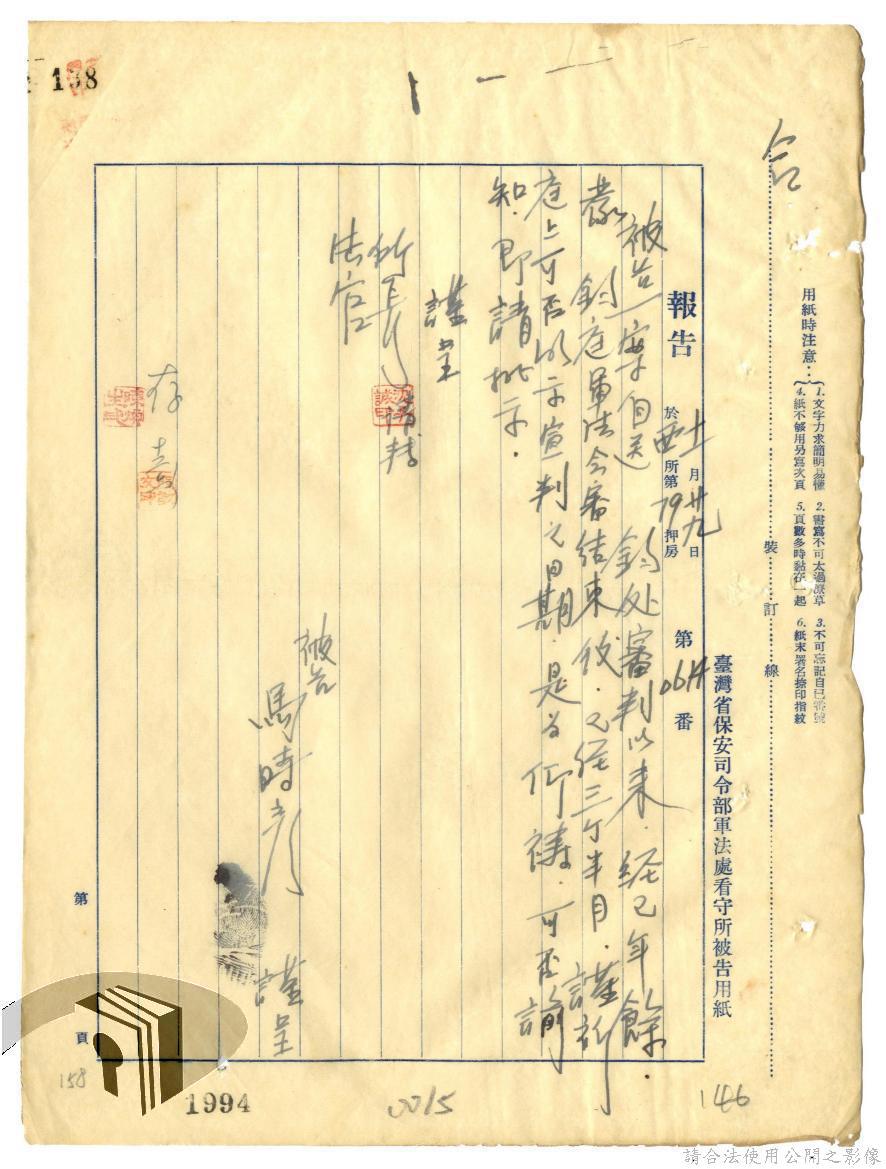 138
合
用紙時注意：
1. 文字力求簡明易懂 2. 書寫不可太過潦草 3. 不可忘記自己番號
4. 紙不够用另寫次頁 5. 頁數多時黏在一起 6. 紙末署名捺印指紋
裝訂線
臺灣省保安司令部軍法處看守所被告用紙
報告
於 十一月廿九日
西所第79押房
第 番
被告一案自送 鈞处審判以來．經已年餘．
蒙 鈞庭軍法会審結束後．又經三个半月．謹祈
庭上可否明示宣判之日期．是为仰禱．可否
知．即請批示．
謹呈
所長
法官
被告
馬時彥
謹呈
存
第 頁
158
1994
0015
146
請合法使用公開之影像